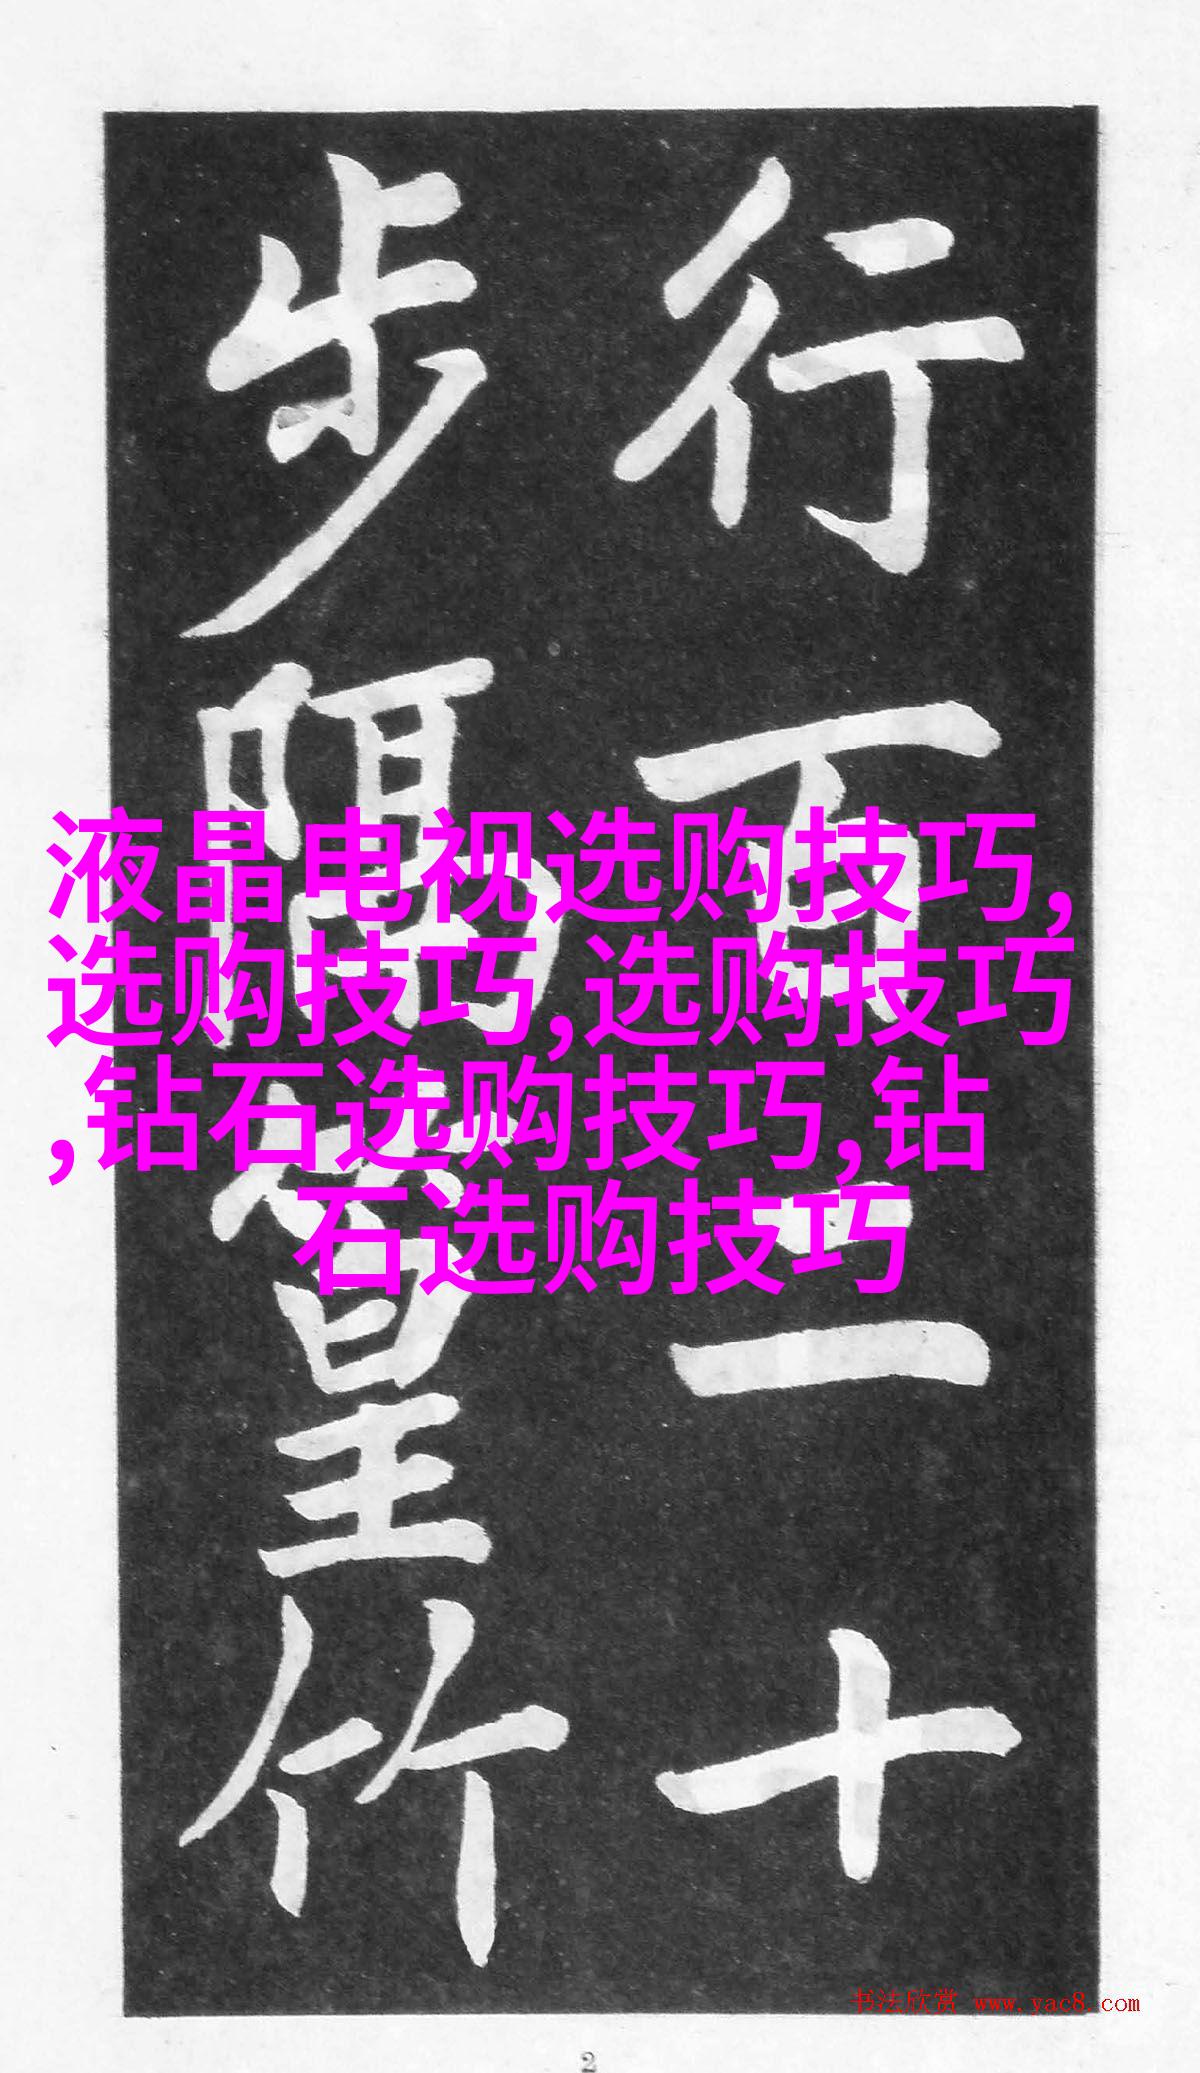 行百二十
步隔篁竹
液晶电视选购技巧,
选购技巧,选购技巧
,钻石选购技巧,钻
石选购技巧
书法欣赏 www.yac8.com
2